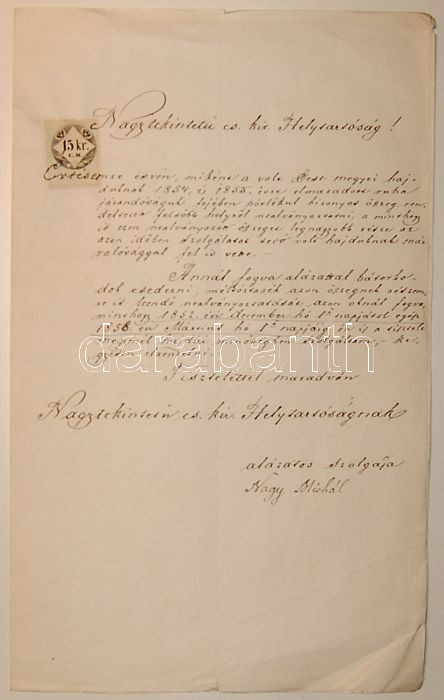 Nagytekintetű cs. kir. Helytartóság!
15 kr.
C.M.
Értésemre esvén, mikint a volt Pest megyei haj-
duknak 1854, és 1855. évre elmaradott ruha
járandóságuk fejében pótlékul bizonyos összeg ren-
deltetett felsőbb helyről utalványoztatni, a minthogy
is ezen utalványozott összeget legnagyobb része az
azon időben szolgálatot tevő volt hajduknak már
valósággal fel is vette. –
Annál fogva alázattal bátorko-
dok esedezni, méltóztassék azon összegnek részem-
re is leendő utalványozását, azon oknál fogva,
minthogy 1852. évi December hó 1ő napjától egész
1858. évi Március hó 1ő napjáig én is a tisztelt
megyénél hajdui minőségben szolgáltam, – ke-
gyesen elrendelni.
Tisztelettel maradván
Nagytekintetű cs. kir. Helytartóságnak
alázatos szolgája
Nagy Mihál
darabanth